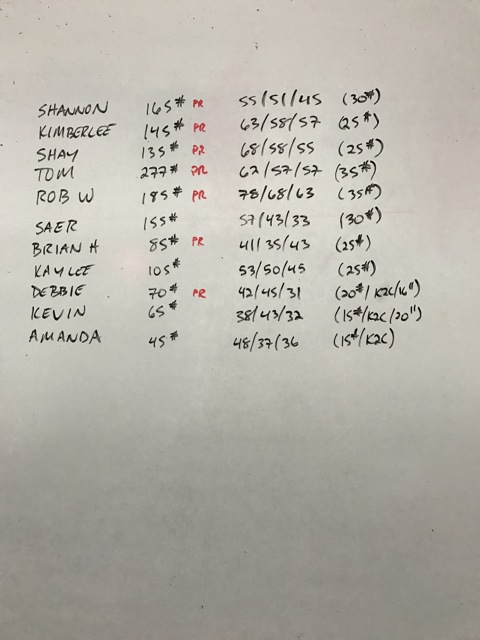 SHANNON 165# PR 55/51/45 (30#)
KIMBERLEE 145# PR 63/58/57 (25#)
SHAY 135# PR 68/58/55 (25#)
TOM 277# PR 62/57/57 (35#)
ROB W 185# PR 78/68/63 (35#)
SAER 155# 57/43/33 (30#)
BRIAN H 85# PR 41/35/43 (25#)
KAYLEE 105# 53/50/45 (25#)
DEBBIE 70# PR 42/45/31 (20#/K2C/16")
KEVIN 65# 38/43/32 (15#/K2C/20")
AMANDA 45# 48/37/36 (15#/K2C)